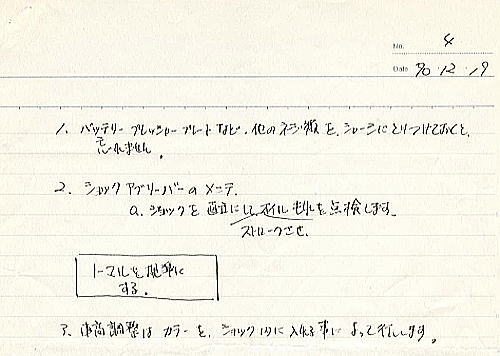 No. 4
Date 90・12・19
1. バッテリー プレッシャープレートなど、他のネジ類を、シャーシにとりつけておくと、
忘れません。
2. ショックアブソーバーのメンテ.
a. ショックを直立にし、オイルもれを点検します。
ストロークさせ、
ノーマルを基準に
する。
ア. 車高調整はカラーを、ショック内に入れる事によって行います。